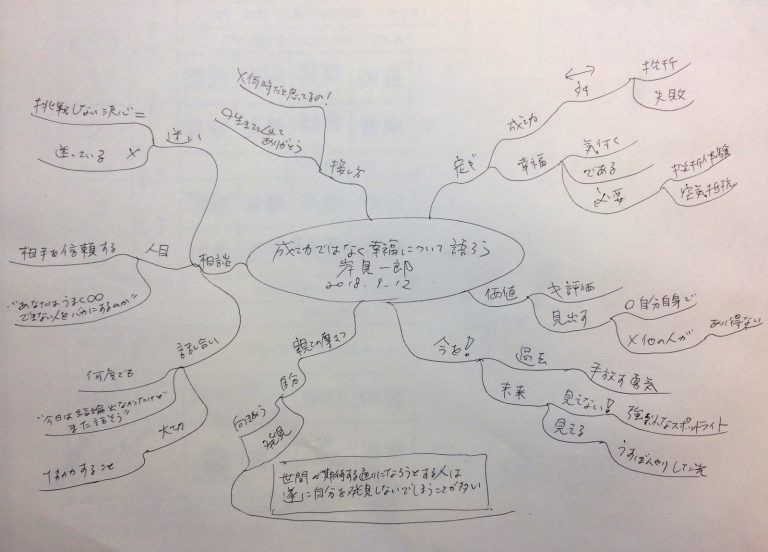 成功ではなく幸福について語ろう
岸見一郎
2018.9.12
成功
挫折
失敗
幸福
気付く
である
必要
挫折体験
空気抵抗
価値
評価
見出す
○自分自身で
×他の人が
あり得ない
今を!
過去
手放す勇気
未来
見えない!
強烈なスポットライト
見てる
うすぼんやりした光
親との摩擦
自分
向き合う
発見
世間が期待する通りになろうとする人は
遂に自分を発見しないでしまうことが多い
相談
迷い
挑戦しない決心=
迷っている ×
人目
相手を信頼する
"あなたはうまく○○
できない人をバカにするのか"
話し合い
何度でも
"今日は結論出なかったけど
また話そう"
大切
協力すること
接し方
×何時だと思ってるの!
○生きててくれて
ありがとう